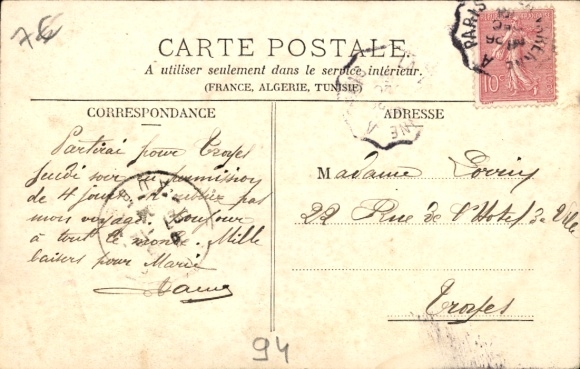 CARTE POSTALE.
A utiliser seulement dans le service intérieur.
(FRANCE, ALGERIE, TUNISIE)
CORRESPONDANCE
Partirai pour Troyes
Jeudi soir en permission
de 4 jours. N'oubliez pas
mon voyage. Bonjour
à tout le monde. Mille
baisers pour Marie
ADRESSE
Madame
22 Rue de l'Hotel de Ville
Troyes
10c
PARIS
A
94